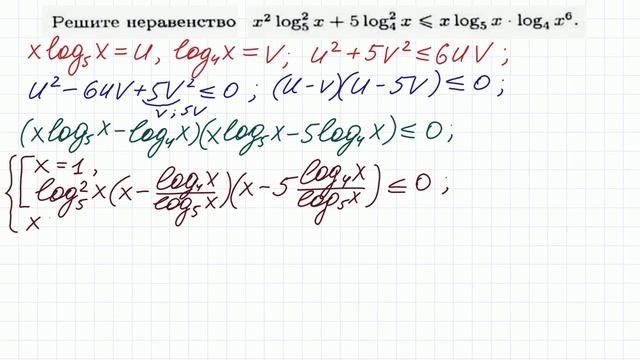 Решите неравенство x² log₅² x + 5 log₄² x ⩽ x log₅ x · log₄ x⁶.
x log₅ x = u, log₄ x = v; u² + 5v² ≤ 6uv;
u² − 6uv + 5v² ≤ 0; (u − v)(u − 5v) ≤ 0;
v; 5v
(x log₅ x − log₄ x)(x log₅ x − 5 log₄ x) ≤ 0;
{ [ x = 1,
log₅² x (x − log₄ x / log₅ x)(x − 5 log₄ x / log₅ x) ≤ 0;
x